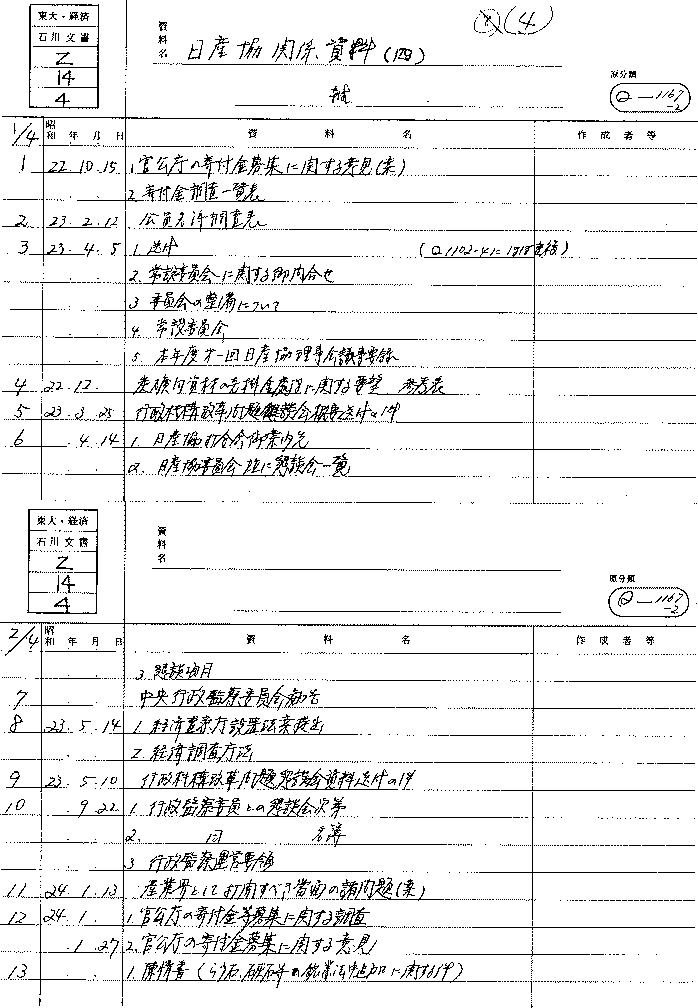 (4)
東大・経済
石川文書
Z
14
4
資料名
日産協関係資料(四)
原分類
Q—1167-2
1/4
昭和 年 月 日 資料名 作成者等
1 22.10.15 1.官公庁の寄付金募集に関する意見(案)
2.寄付金調査一覧表
2 23.2.12 調査表
3 23.4.5 1.送付
2.常設委員会に関する御問合せ
3.委員会の整備について
4.常設委員会
5.本年度第一回日産協理事会議事要録
4 22.12 に関する要望 参考表
5 23.3.25 行政機構改革問題懇談会概要送付の件
6 .4.14 1.日産協打合会御案内先
2.日産協委員会並に懇談会一覧
東大・経済
石川文書
Z
14
4
資料名
原分類
Q—1167-2
2/4
昭和 年 月 日 資料名 作成者等
3.懇談項目
7 中央行政監察委員会勧告
8 23.5.14 1.経済査察庁設置法案提出
2.経済調査庁法
9 23.5.10 行政機構改革問題懇談会資料送付の件
10 .9.22 1.行政監察委員との懇談会次第
2. 同 名簿
3.行政監察運営要領
11 24.1.13 産業界として打開すべき当面の諸問題(案)
12 24.1. 1.官公庁の寄付金等募集に関する調査
.1.27 2.官公庁の寄付金募集に関する意見
13 1.陳情書 (の鉱業法中追加に関する件)